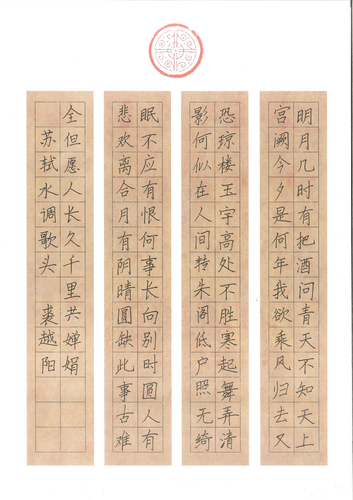 明月几时有把酒问青天不知天上
宫阙今夕是何年我欲乘风归去又
恐琼楼玉宇高处不胜寒起舞弄清
影何似在人间转朱阁低户照无绮
眠不应有恨何事长向别时圆人有
悲欢离合月有阴晴圓缺此事古难
全但愿人长久千里共婵娟
苏轼水调歌头 裘越阳